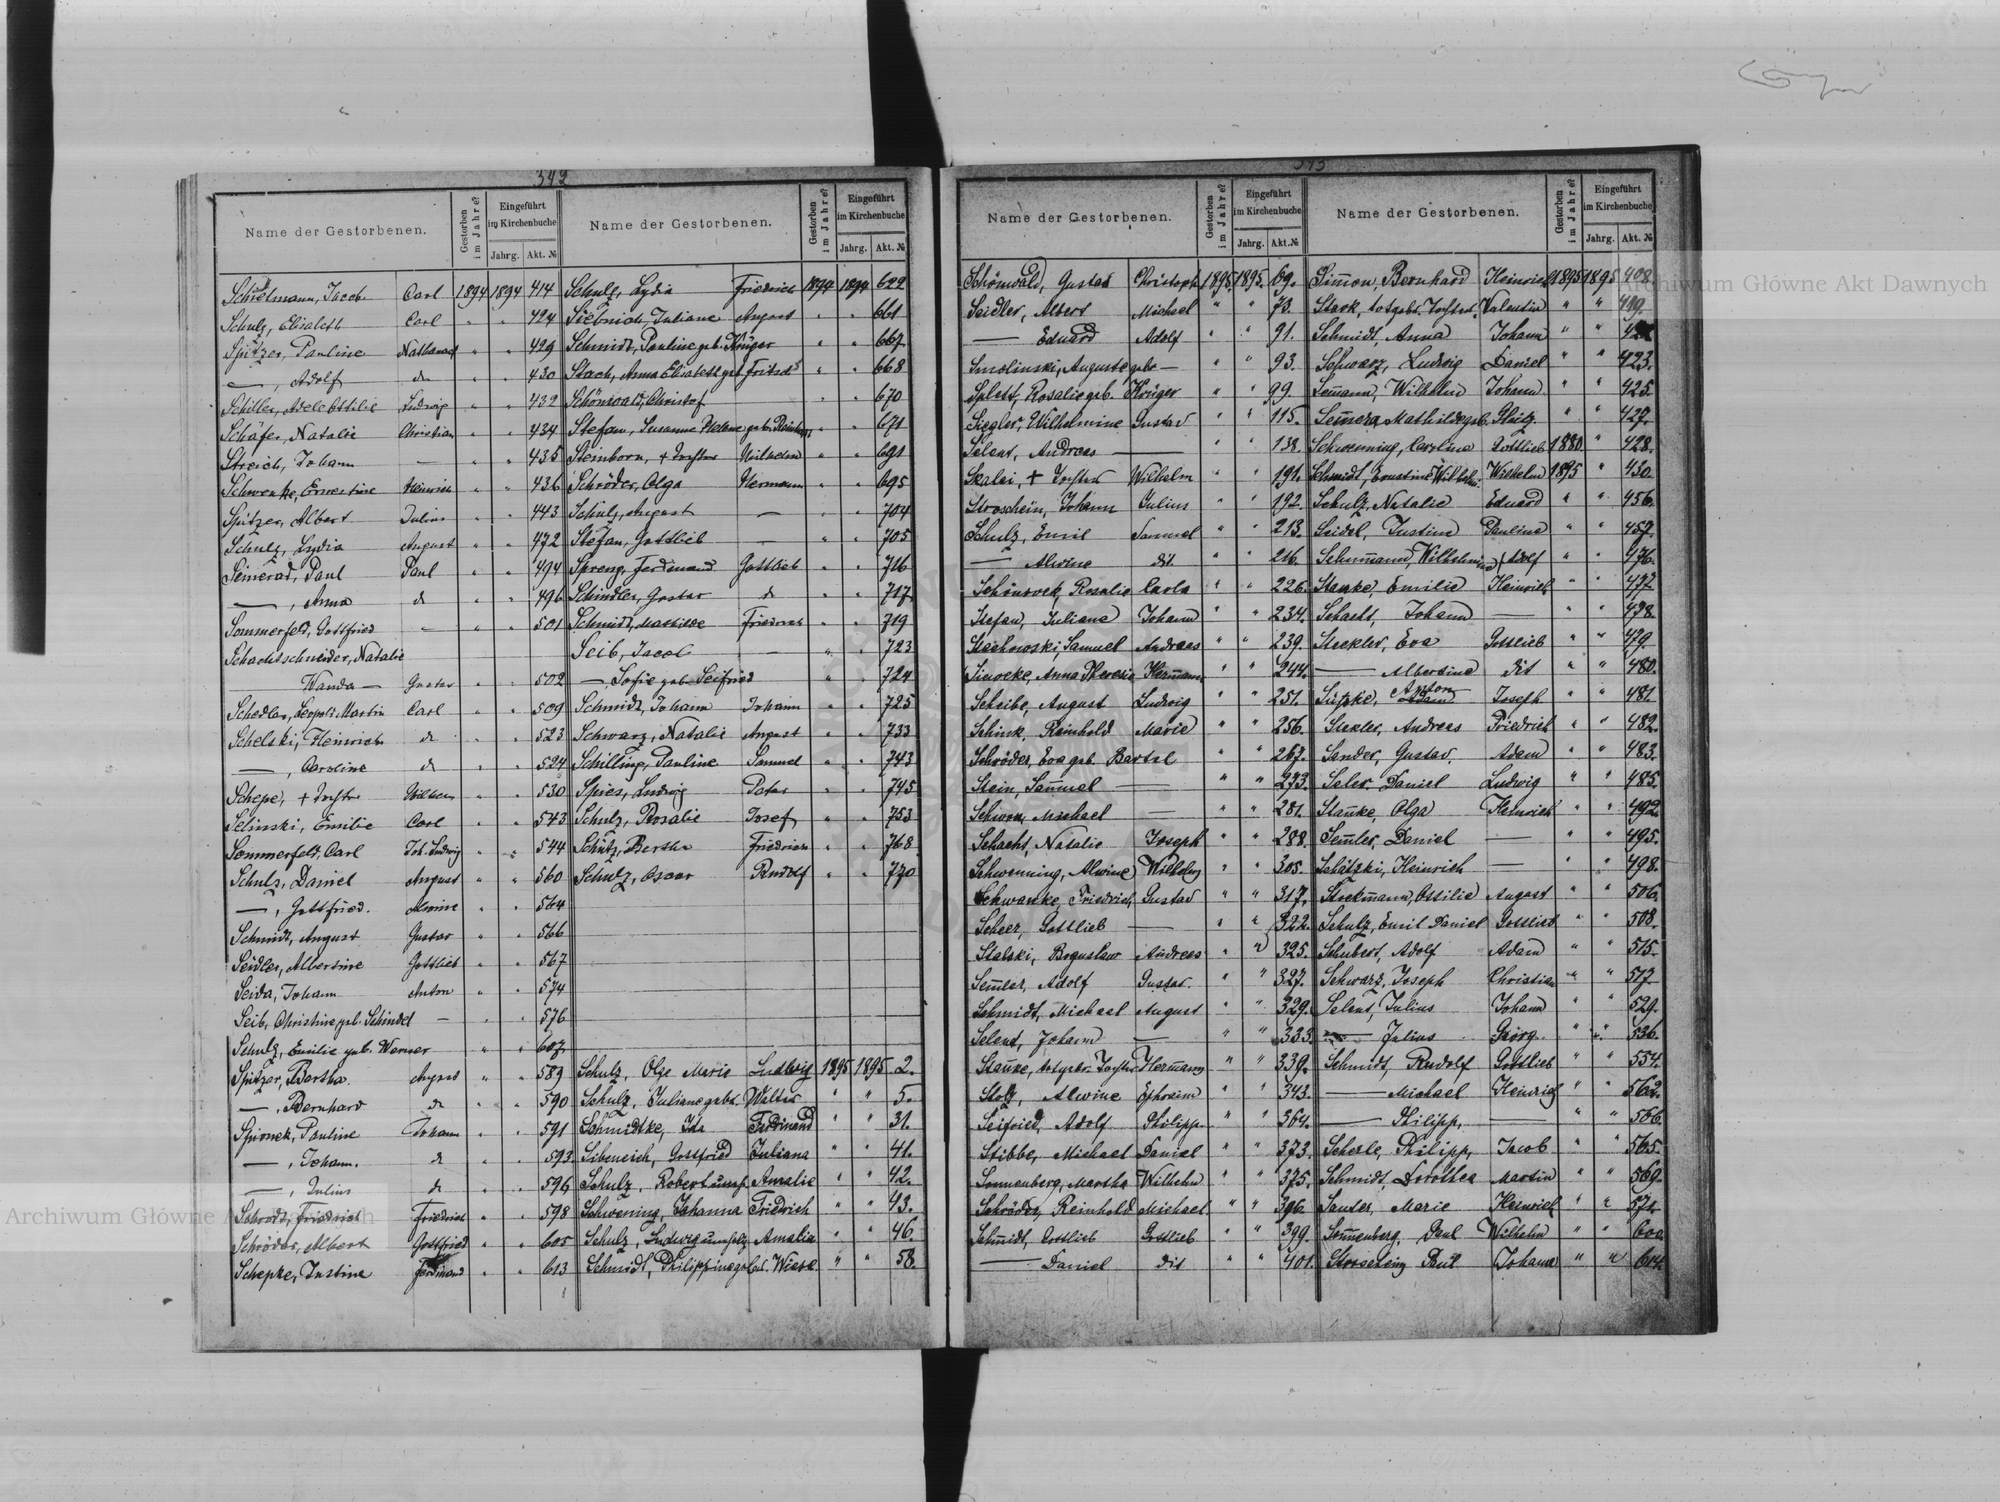 342
Name der Gestorbenen. Gestorben im Jahre? Eingeführt im Kirchenbuche Jahrg. Akt. №
Schielmann, Jacob Carl 1894 1894 414
Schulz, Elisabeth Carl " " 424
Spitzer, Pauline Nathanael " " 429
—, Adolf do " " 430
Schiller, Adele Ottilie Ludwig " " 432
Schäfer, Natalie Christian " " 434
Streich, Johann — " " 435
Schwenke, Ernestine Heinrich " " 436
Spitzer, Albert Julius " " 443
Schulz, Lydia August " " 472
Seinerad, Paul Paul " " 494
—, Anna do " " 496
Sommerfeld, Gottfried — " " 501
Schachtschneider, Natalie
Wanda — Gustav " " 502
Schedler, Leopold Martin Carl " " 509
Schelski, Heinrich do " " 523
—, Caroline do " " 524
Schepe, + Tochter Wilhelm " " 530
Selinski, Emilie Carl " " 543
Sommerfeld, Carl Joh. Ludwig " " 544
Schulz, Daniel August " " 560
—, Gottfried. Alwine " " 564
Schmidt, August Gustav " " 566
Seidler, Albertine Gottlieb " " 567
Seida, Johann Anton " " 574
Seib, Christine geb. Schindel — " " 576
Schulz, Emilie geb. Werner " " 607
Spitzer, Bertha. August " " 589
—, Bernhard do " " 590
Spionek, Pauline Johann " " 591
—, Johann. do " " 593
—, Julius do " " 596
Schrodt, Friedrich Friedrich " " 598
Schröder, Albert Gottfried " " 605
Schepke, Justine Ferdinand " " 613
Name der Gestorbenen. Gestorben im Jahre? Eingeführt im Kirchenbuche Jahrg. Akt. №
Schulz, Lydia Friedrich 1894 1894 622
Siebnich, Juliane August " " 661
Schmidt, Pauline geb. Krüger " " 667
Stach, Anna Elisabeth geb. Fritsch " " 668
Schönwald, Christof " " 670
Stefan, Susanna Helene geb. " " 671
Steinborn, + Tochter Wilhelm " " 691
Schröder, Olga Hermann " " 695
Schulz, August — " " 704
Stefan, Gottlieb — " " 705
Spreng, Ferdinand Gottlieb " " 716
Schindler, Gustav do " " 717
Schmidt, Mathilde Friedrich " " 719
Seib, Jacob — " " 723
—, Sofie geb. Seifried " " 724
Schmidt, Johann Johann " " 725
Schwarz, Natalie August " " 733
Schilling, Pauline Samuel " " 743
Spies, Ludwig Peter " " 745
Schulz, Rosalie Josef " " 753
Schütz, Bertha Friedrich " " 768
Schulz, Oscar Rudolf " " 770
Schulz, Olga Marie Ludwig 1895 1895 2.
Schulz, Juliane gebr. Walter " " 5.
Schmidtke, Ida Ferdinand " " 31.
Sibeneich, Gottfried Juliana " " 41.
Schulz, Robert Amalie " " 42.
Schwening, Johanna Friedrich " " 43.
Schulz, Ludwig Amalia " " 46.
Schmidt, Philippine geb. Wiese " " 58.
343
Name der Gestorbenen. Gestorben im Jahre? Eingeführt im Kirchenbuche Jahrg. Akt. №
Schönwald, Gustav Christoph 1895. 1895. 69.
Seidler, Albert Michael " " 73.
— Eduard Adolf " " 91.
Smolinski, Auguste gebr — " " 93.
Splett, Rosalie geb. Krüger " " 99.
Siegler, Wilhelmine Gustav " " 115.
Selent, Andreas — " " 138.
Skalei, + Tochter Wilhelm " " 191.
Stroschein, Johann Julius " " 192.
Schulz, Emil Samuel " " 213.
— Alwine dit. " " 216.
Schönrock, Rosalie Carla " " 226.
Stefan, Juliana Johann " " 234.
Stachowski, Samuel Andreas " " 239.
Sieweke, Anna Theresie Hermann " " 244.
Scheibe, August Ludwig " " 251.
Schink, Reinhold Marie " " 256.
Schröder, Eva geb. Bartel " " 267.
Stein, Samuel — " " 273.
Schwon, Michael — " " 281.
Schacht, Natalie Joseph " " 288.
Schwenning, Alwine Wilhelm " " 305.
Schwanke, Friedrich Gustav " " 317.
Scheer, Gottlieb — " " 322.
Stalski, Boguslaw Andreas " " 325.
Semler, Adolf Gustav. " " 327.
Schmidt, Michael August " " 329.
Selent, Johann — " " 333.
Stanke, totgebr. Tochter Hermann " " 339.
Stolz, Alwine Ephraim " " 343.
Seifried, Adolf Philipp " " 364.
Stibbe, Michael Daniel " " 373.
Sonnenberg, Martha Wilhelm " " 375.
Schröder, Reinhold Michael " " 396.
Schmidt, Gottlieb Gottlieb " " 399.
— Daniel dit " " 401.
Name der Gestorbenen. Gestorben im Jahre? Eingeführt im Kirchenbuche Jahrg. Akt. №
Simon, Bernhard Heinrich 1895 1895 408.
Stark, totgebr. Tochter. Valentin " " 419.
Schmidt, Anna Johann " "
Schwarz, Ludwig Daniel " " 423.
Semann, Wilhelm Johann " " 425.
Semera, Mathilde geb. " " 427.
Schwenning, Carolina Gottlieb 1880 " 428.
Schmidt, Ernestine Wilhelm. Wilhelm 1895 " 430.
Schulz, Natalie Eduard " " 456.
Seidel, Justine Pauline " " 457.
Schumann, Wilhelmine Adolf " " 476.
Stanke, Emilie Heinrich " " 477
Schacht, Johann — " " 478.
Steckler, Eva Gottlieb " " 479.
— Albertine dit " " 480.
Anton Joseph " " 481.
Stekler, Andreas Friedrich " " 482.
Sander, Gustav. Adam " " 483.
Seler, Daniel Ludwig " " 485.
Stanke, Olga Heinrich " " 492.
Semler, Daniel — " " 495.
Schatzki, Heinrich — " " 498.
Stockmann, Ottilie August " " 506.
Schulz, Emil Daniel Gottlieb " " 508.
Schubert, Adolf Adam " " 515.
Schwarz, Joseph Christian " " 517.
Selent, Julius Johann " " 529.
— Julius Georg. " " 536.
Schmidt, Rudolf Gottlieb " " 554.
— Michael Heinrich " " 562.
— Philipp, — " " 566.
Scherle, Philipp, Jacob " " 565.
Schmidt, Dorothea Martin " " 569.
Sauter, Marie Heinrich " " 571.
Sonnenberg, Paul Wilhelm " " 600.
Paul Johann " " 614.
Archiwum Główne Akt Dawnych
Archiwum Główne Akt Dawnych